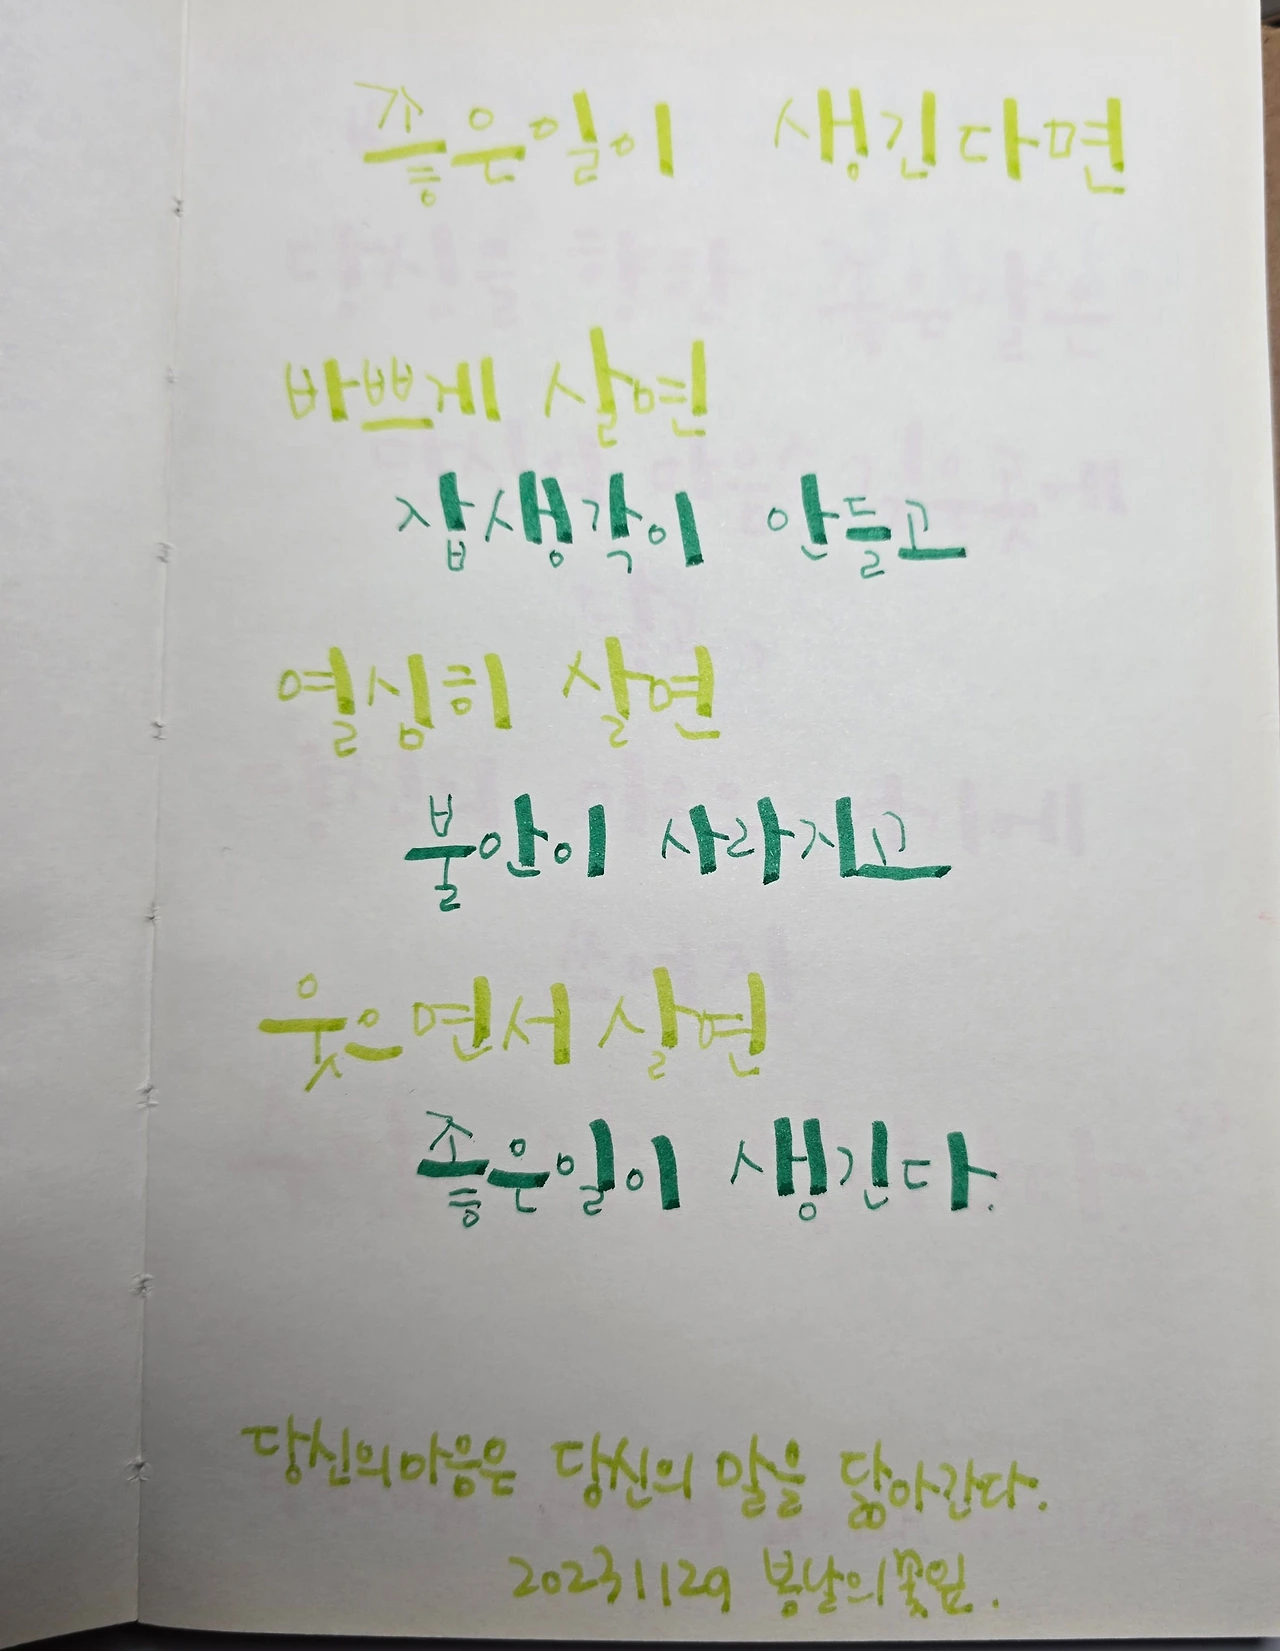 좋은일이 생긴다면
바쁘게 살면
잡생각이 안들고
열심히 살면
불안이 사라지고
웃으면서 살면
좋은일이 생긴다.
당신의마음은 당신의 말을 닮아간다.
20231129 봄날의꽃잎.